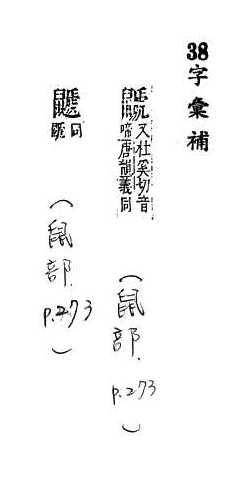 38字彙補
又杜奚切音
啼唐韻義同
(鼠部.p.273)
同
(鼠部.p.273)